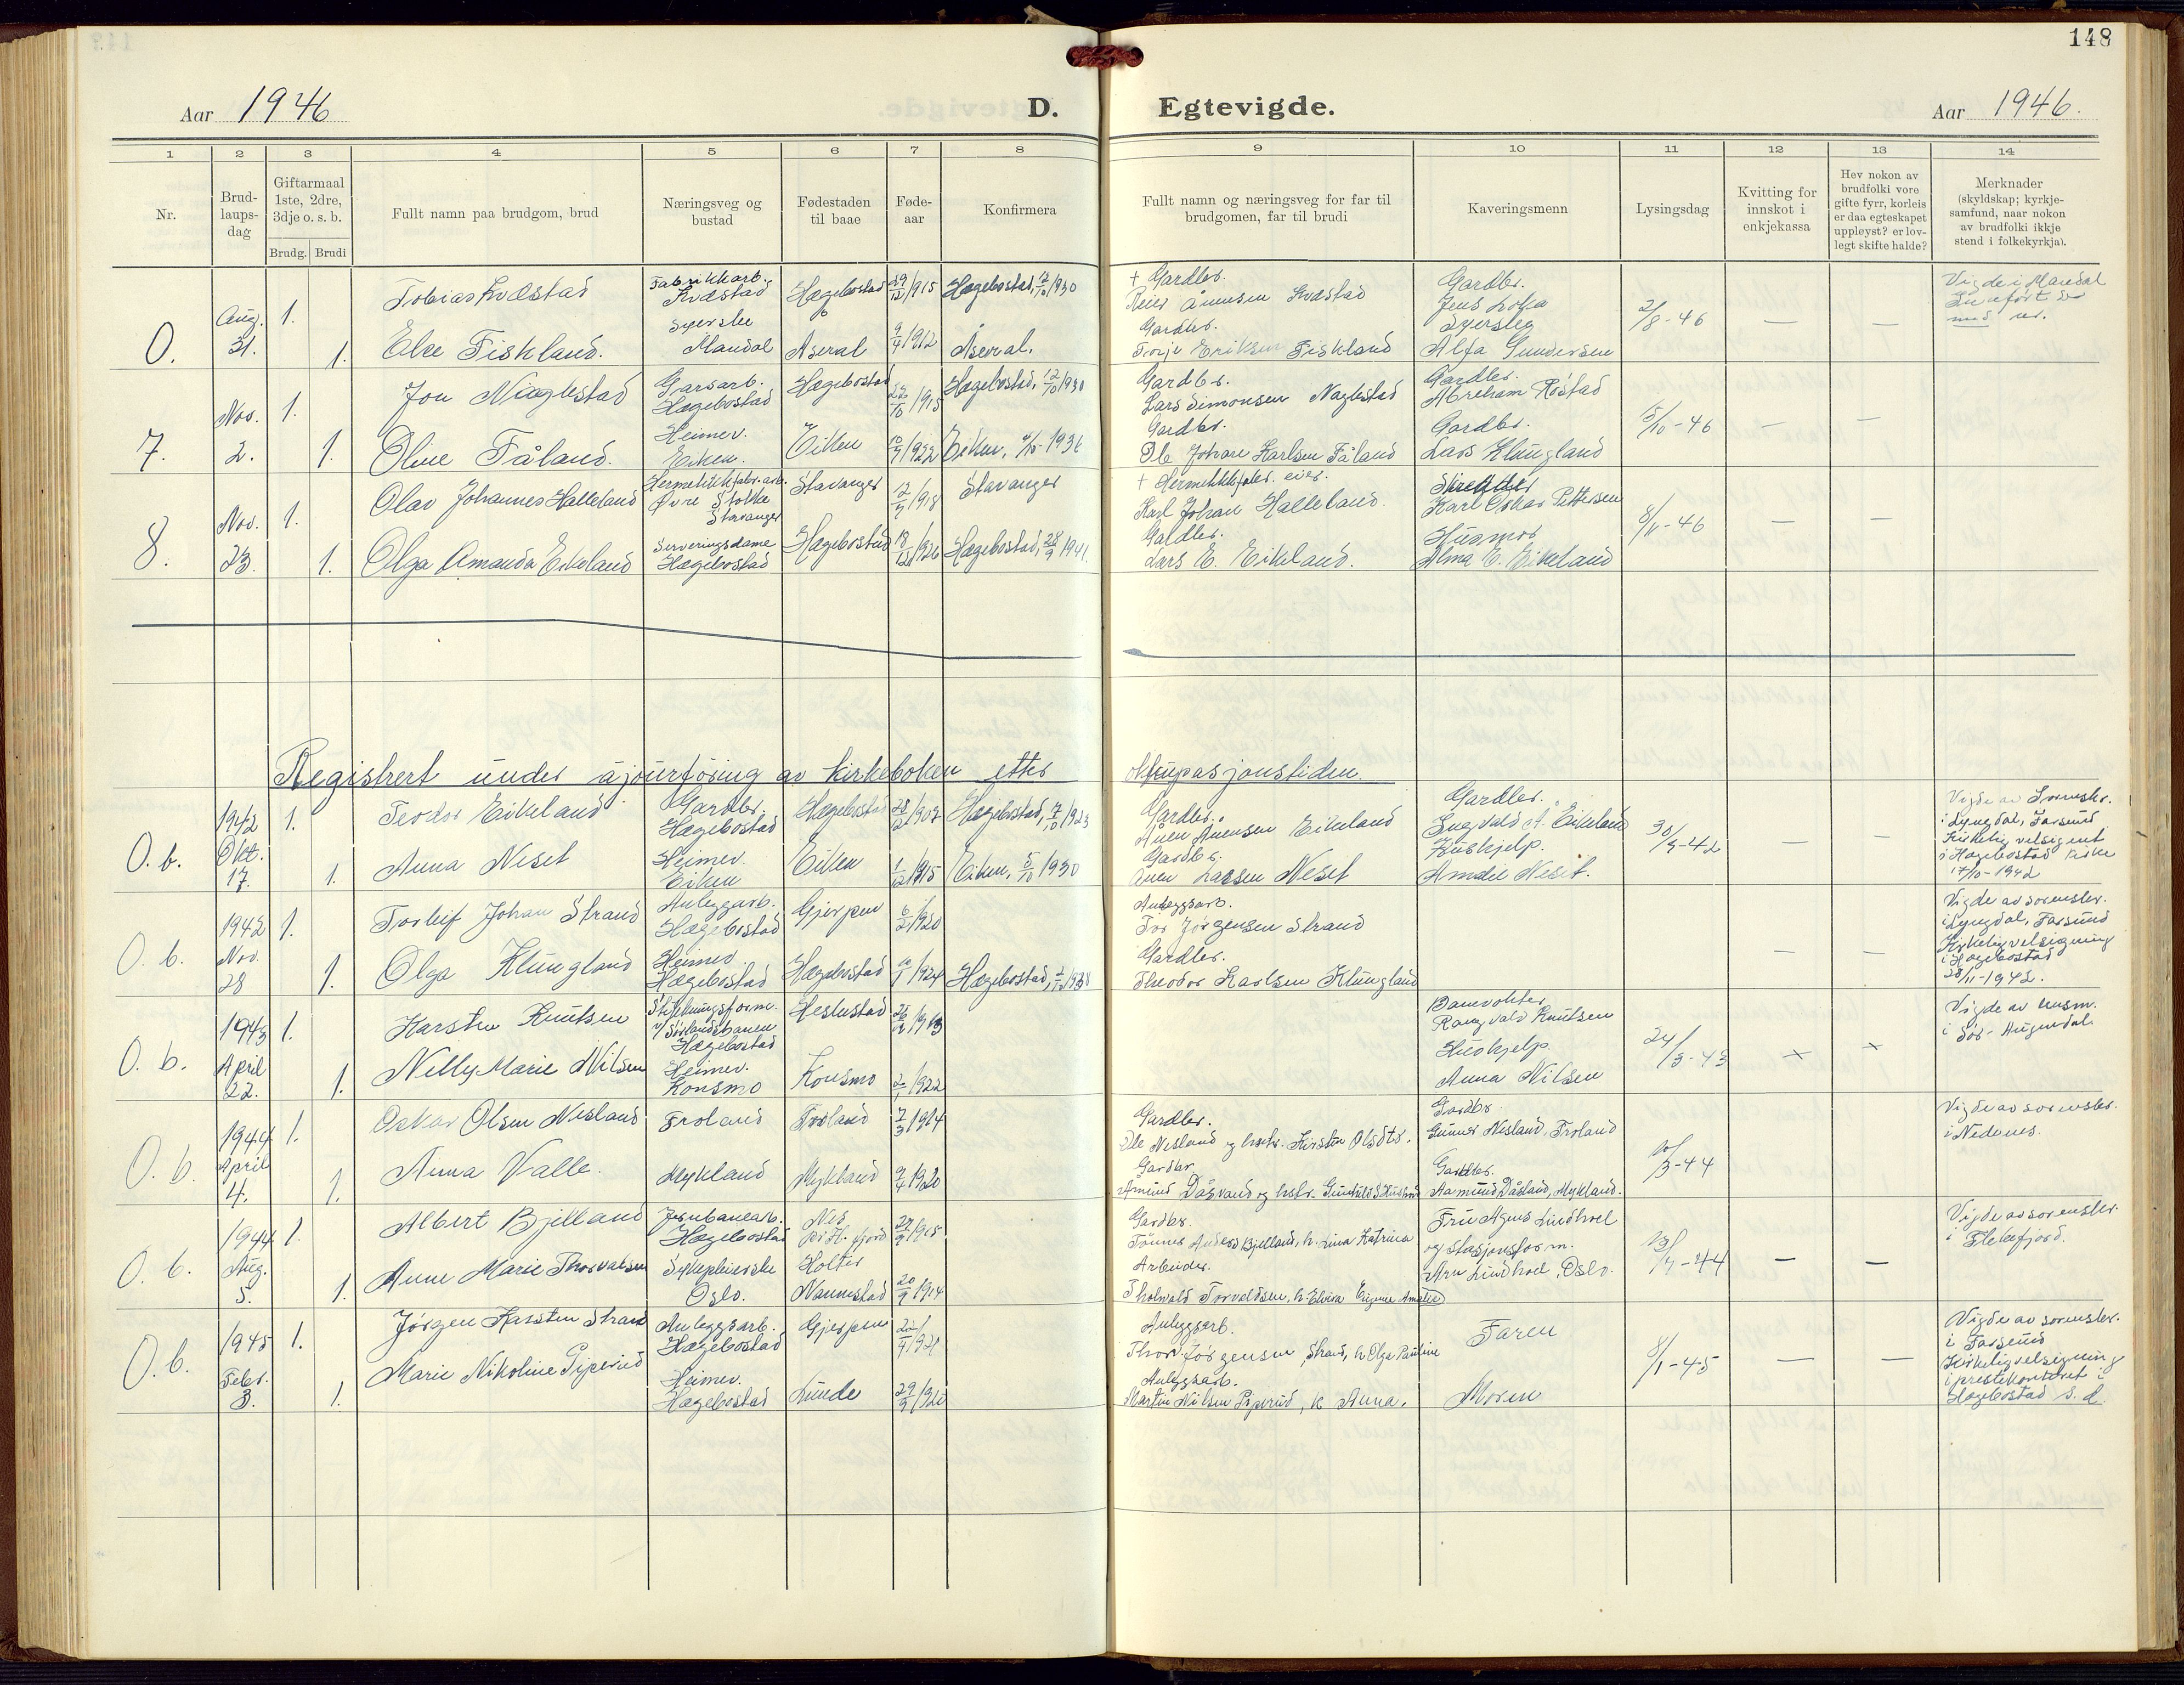 148
Aar 1946
D. Egtevigde.
Aar 1946.
1 2 3 4 5 6 7 8 9 10 11 12 13 14
Nr.
Brud-
laups-
dag
Giftarmaal
1ste, 2dre,
3dje o. s. b.
Brudg. Brudi
Fullt namn paa brudgom, brud
Næringsveg og
bustad
Fødestaden
til baae
Føde-
aar
Konfirmera
Fullt namn og næringsveg for far til
brudgomen, far til brudi
Kaveringsmenn
Lysingsdag
Kvitting for
innskot i
enkjekassa
Hev nokon av
brudfolki vore
gifte fyrr, korleis
er daa egteskapet
uppløyst? er lov-
legt skifte halde?
Merknader
(skyldskap; kyrkje-
samfund, naar nokon
av brudfolki ikkje
stend i folkekyrkja).
O.
Aug.
31.
1.
Tobias Kvåstad
Fabrikkarb.
Kvåstad
Hægebostad
29/12 1915
Hægebostad, 12/10 1930
+ Gardbr.
Kvåstad
Gardbr.
2/8-46
—
—
Vigde i Mandal
1.
Else Fiskland.
Syerske
Mandal
Åseral
9/4 1912
Åseral.
Terje Eriksen Fiskland
Alfa Gundersen
7.
Nov.
2.
1.
Jon Naglestad
Garsarb.
Hægebostad
Hægebostad
Hægebostad, 12/10 1930
Gardbr.
Lars Simonsen Naglestad
Gardbr.
Abreham Røstad
5/10-46
—
—
1.
Oline Fåland.
Heimev.
Eiken.
Eiken
10/9 1922
Gardbr.
Johan Karlsen Fåland
Gardbr.
Lars Klungland
8.
Nov.
23.
1.
Olav Johannes Halleland
Hermetikkfabr.arb.
Øvre Stokke
Stavanger
Stavanger
Stavanger
+ Hermetikkfabr. eier.
Karl Johan Halleland.
Skredder
Karl Oskar Pettersen
8/11-46
—
—
1.
Olga Amanda Eikeland
Serveringsdame
Hægebostad
Hægebostad
18/12 1926
Hægebostad, 28/9 1941.
Lars E. Eikeland.
Husmor
Alma E. Eikeland
Registrert under ajourføring av kirkeboken etter okkupasjonstiden.
O. b.
1942
Okt.
17.
1.
Teodor Eikeland
Gardbr.
Hægebostad
Hægebostad
Hægebostad, 7/10 1923
Gardbr.
Ånen Ånensen Eikeland
Gardbr.
Ingvald A. Eikeland
30/9-42
—
—
Vigde av Sorenskr.
i Lyngdal, Farsund
Kirkelig velsignet
i Hægebostad kirke
17/10-1942
1.
Anna Neset
Heimev.
Eiken
Eiken
1/12 1915
Eiken, 5/10 1930
Gardbr.
Ånen Larsen Neset
Hushjelp.
Amalie Neset.
O. b.
1942
Nov.
28
1.
Torleif Johan Strand
Anleggsarb.
Hægebostad
Gjerpen
6/2 1920
Anleggsarb.
Tor Jørgensen Strand
—
—
Vigde av sorenskr.
i Lyngdal, Farsund
Kirkelig velsigning
i Hægebostad
28/11-1942.
1.
Olga Klungland
Heimev.
Hægebostad
Hægebostad
Gardbr.
Theodor Karlsen Klungland
O. b.
1943
April
22.
1.
Karsten Knutsen
v/Sørlandsbanen
Hægebostad
Banevokter
Rangvald Knutsen
24/3-43
×
×
Vigde av
i Sør-Audnedal.
1.
Nelly Marie Nilsen
Heimev.
Konsmo
Konsmo
Hushjelp
Anna Nilsen
O. b.
1944
April
4.
1.
Oskar Olsen Nesland
Froland
Froland
7/3 1914
Gardbr.
Ole Nesland og hustr. Kirsten Olsdtr.
Gardbr.
Gunnar Nesland, Froland
10/3-44
Vigde av sorenskr.
i Nedenes.
1.
Anna Valle.
Mykland
Mykland
9/4 1920
Gardbr.
Gardbr.
Aamund Dåsland, Mykland.
O. b.
1944
Aug.
5.
1.
Albert Bjelland
Jernbanearb.
Hægebostad
Nes
Gardbr.
Tønnes Anders Bjelland, h. Lina Katrina
Fru Agnes Lindhoel
og stasjonsform.
Arn Lindhoel, Oslo.
—
—
Vigde av sorenskr.
i Flekkefjord.
1.
Anne Marie Thorvalsen
Sykepleierske
Oslo.
Holter
Nannestad
20/9 1914
Arbeider.
Thorvald Torvaldsen, h. Elvira Eugenie Amalie
O. b.
1945
Febr.
3.
1.
Jørgen Karsten Strand
Anleggsarb.
Hægebostad
Gjerpen
Anleggsarb.
Thor Jørgensen Strand, h Olga Pauline
Faren
8/1-45
—
—
Vigde av sorenskr.
i Farsund
Kirkelig velsigning
i prestekontoret i
Hægebostad s. d.
1.
Marie Nikoline Piperud
Heimev.
Hægebostad
Lunde
Anleggsarb.
Martin Nilsen Piperud, h Anna.
Moren